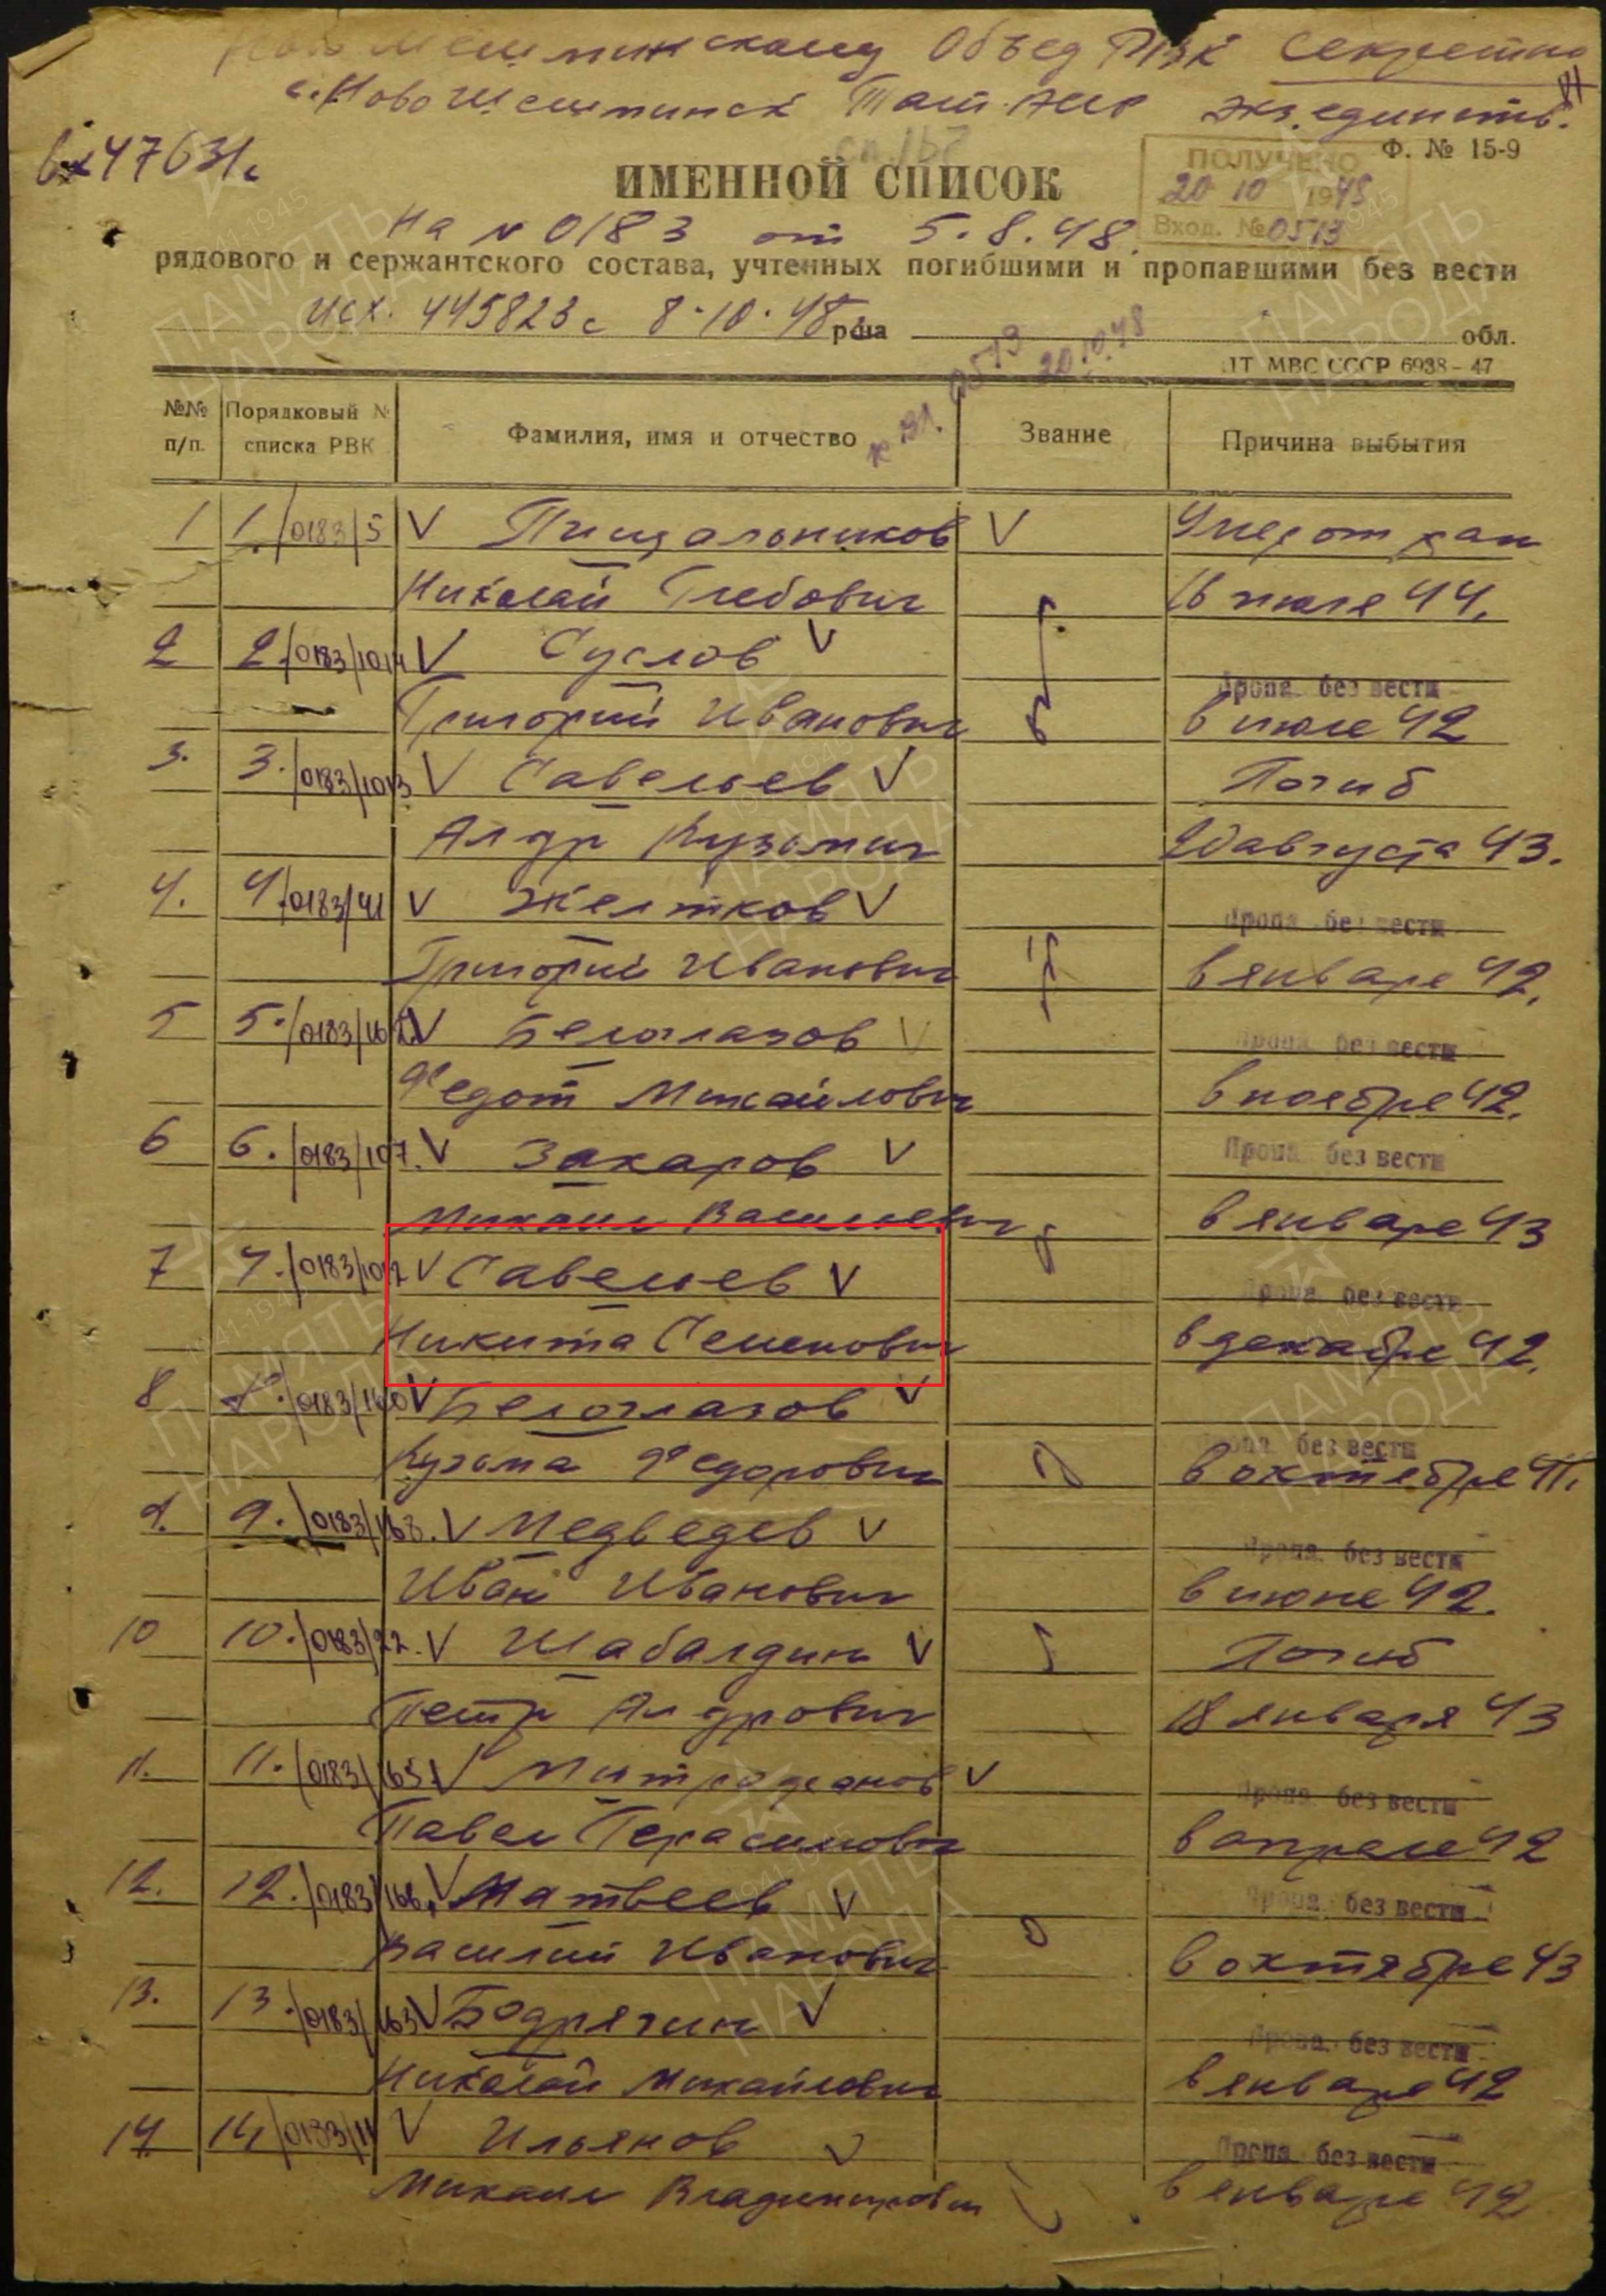 Ново Шешминскому Объед РВК Секретно
с. Ново Шешминск Тат. АССР экз. единств.
вх 47631с
Ф. № 15-9
ПОЛУЧЕНО
20 10 1948
Вход. № 0513
ИМЕННОЙ СПИСОК
На № 0183 от 5.8.48.
рядового и сержантского состава, учтенных погибшими и пропавшими без вести
исх. 445823с 8.10.48 р-на обл.
0513 20.10.48
ЦТ МВС СССР 6938-47
№№ п/п. Порядковый № списка РВК Фамилия, имя и отчество Звание Причина выбытия
1 1./0183/5 V Пищальников V Умер от ран
Николай Глебович 16 июля 44.
2 2./0183/1014 V Суслов V Пропа. без вести
Григорий Иванович в июле 42
3. 3./0183/1013 V Савельев V Погиб
Алдр Кузьмич 20 августа 43.
4. 4/0183/41 V Желтков V Пропа. без вести
Григорий Иванович в январе 42.
5 5./0183/162 V Белоглазов V Пропа. без вести
Федот Михайлович в ноябре 42.
6 6./0183/107. V Захаров V Пропа. без вести
Михаил Васильевич в январе 43
7 7./0183/1012 V Савельев V Пропа. без вести
Никита Семенович в декабре 42.
8 8./0183/160 V Белоглазов V Пропа. без вести
Кузьма Федорович в октябре 41.
9. 9./0183/168. V Медведев V Пропа. без вести
Иван Иванович в июне 42.
10 10./0183/22. V Шабалдин V Погиб
Петр Алдрович 18 января 43
11. 11./0183/165. V Митрофанов V Пропа. без вести
Павел Герасимович в апреле 42
12. 12./0183/166. V Матвеев V Пропа. без вести
Василий Иванович в октябре 43
13. 13./0183/163 V Бодрягин V Пропа. без вести
Николай Михайлович в январе 42
14 14/0183/11 V Ильянов V Пропа. без вести
Михаил Владимирович в январе 42